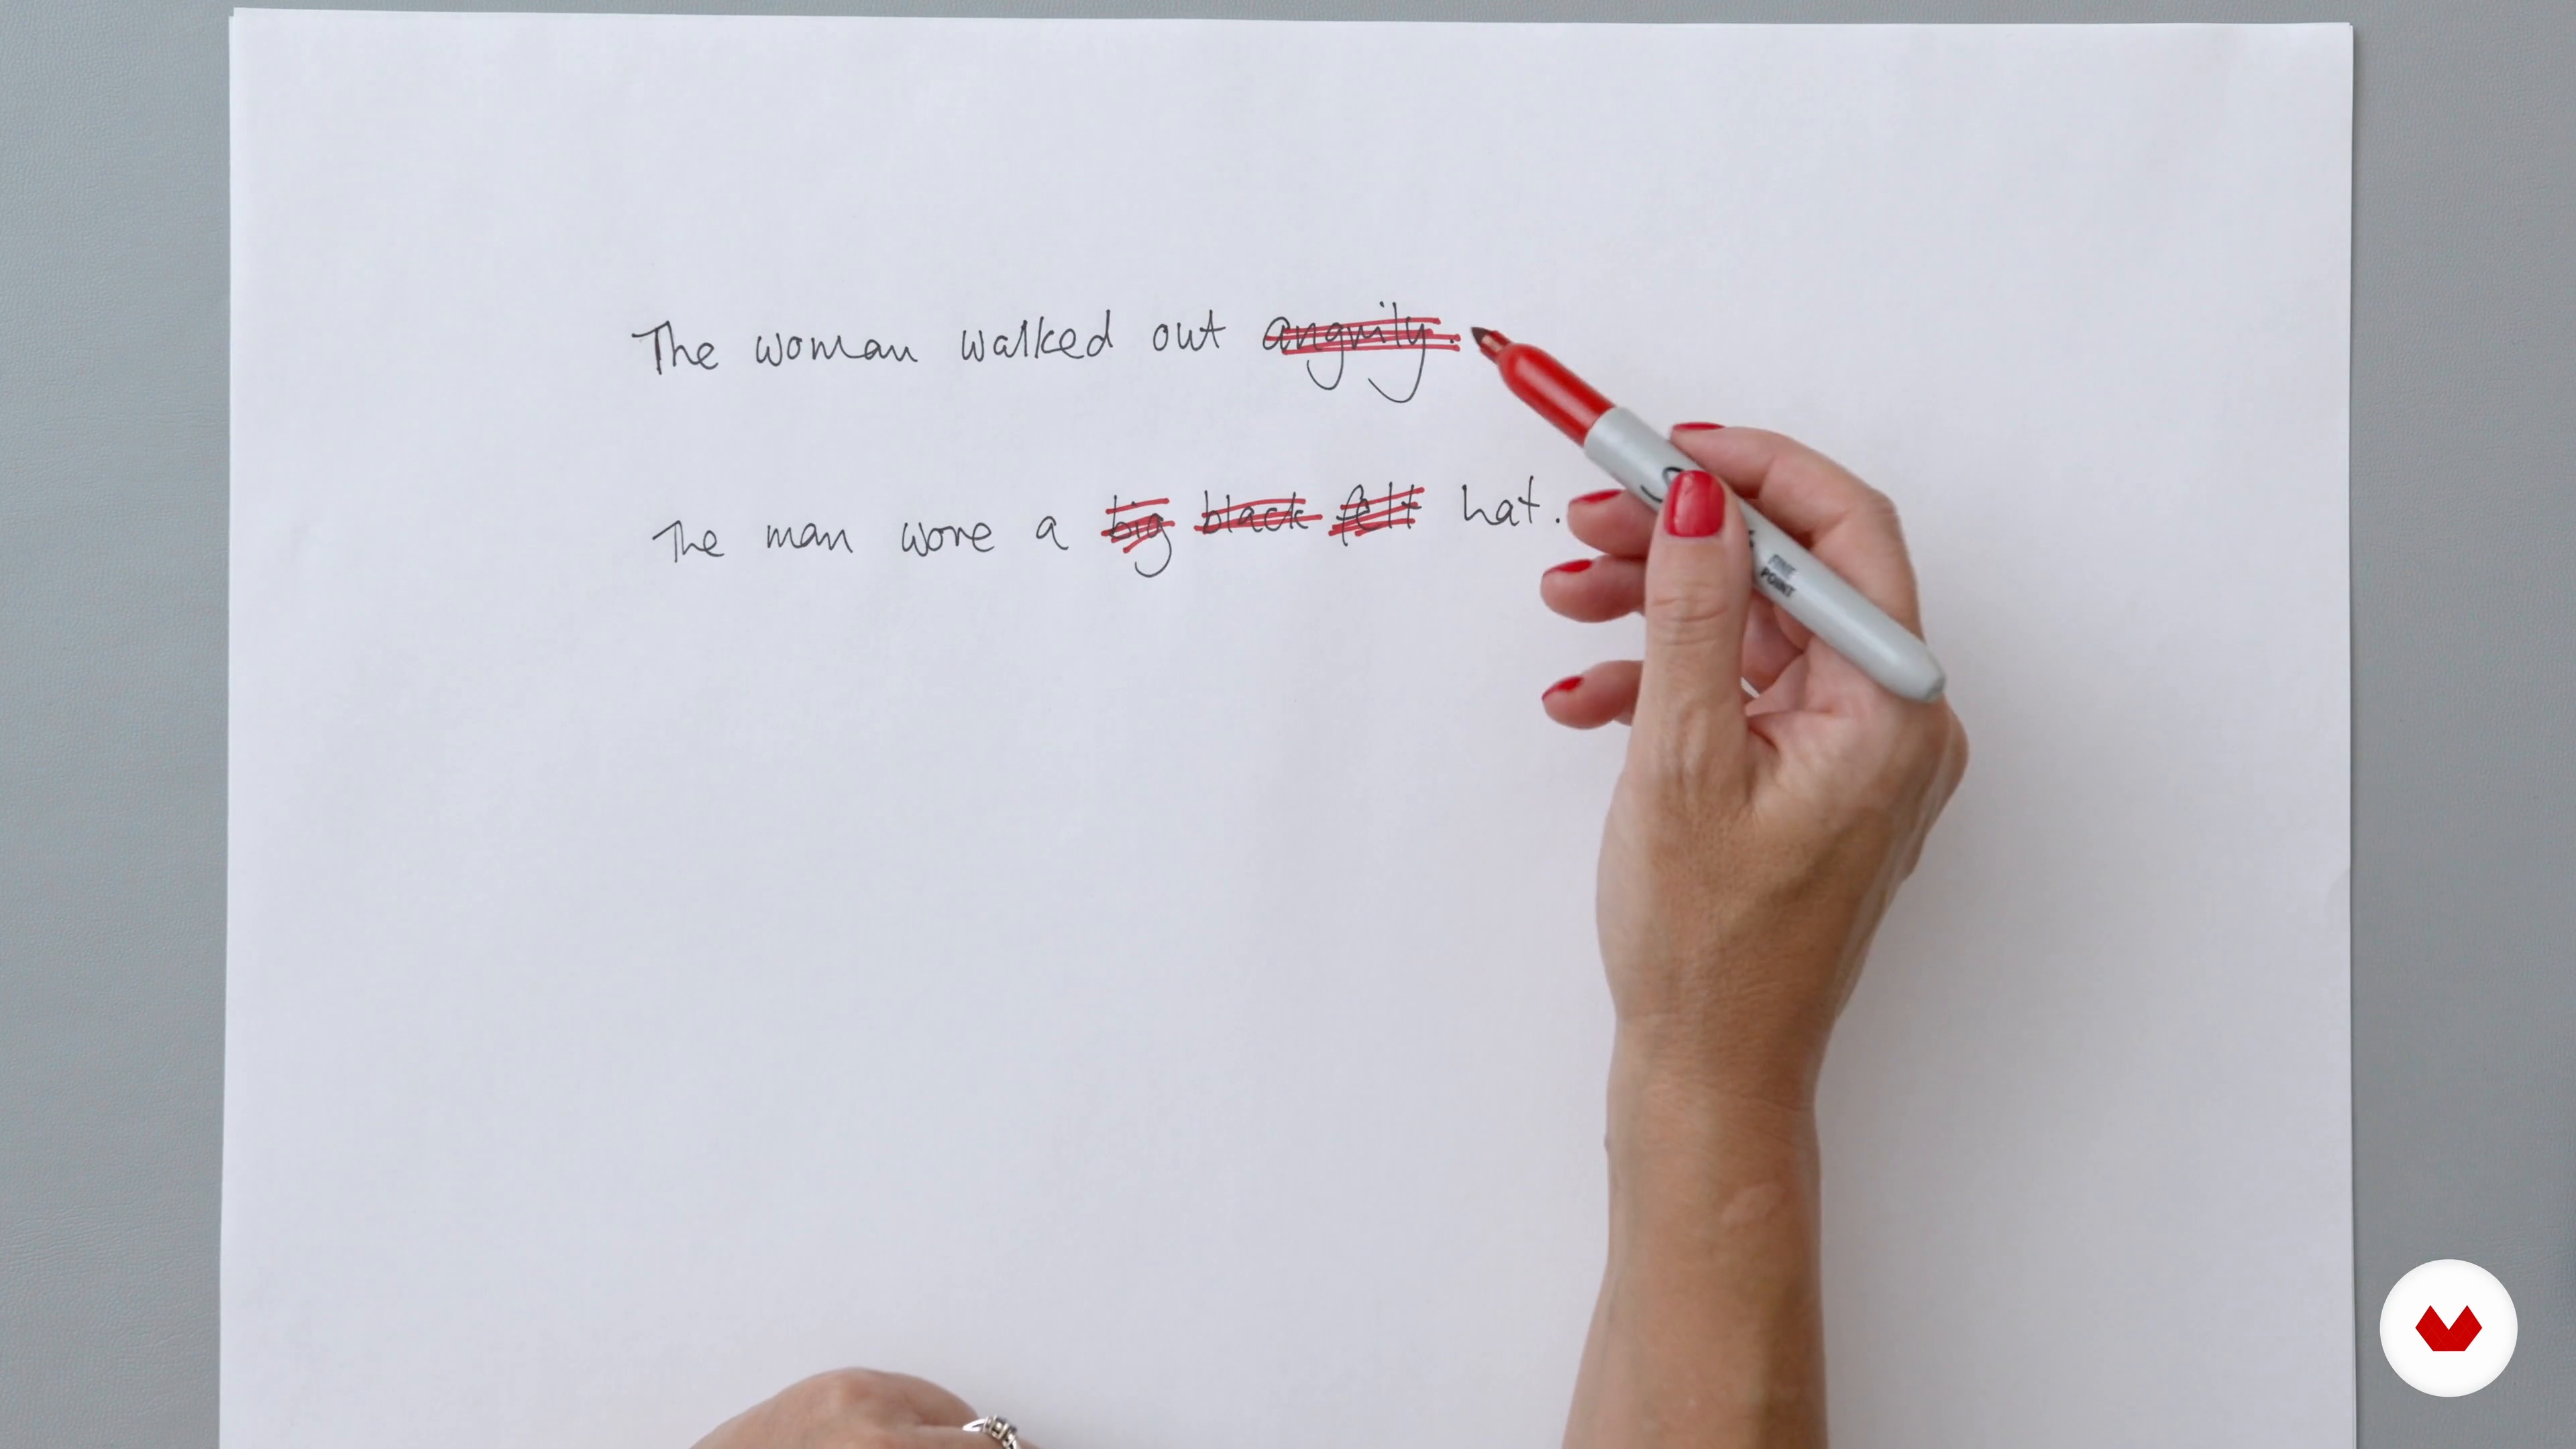 The woman walked out angrily.
The man wore a big black felt hat.
FINE
POINT